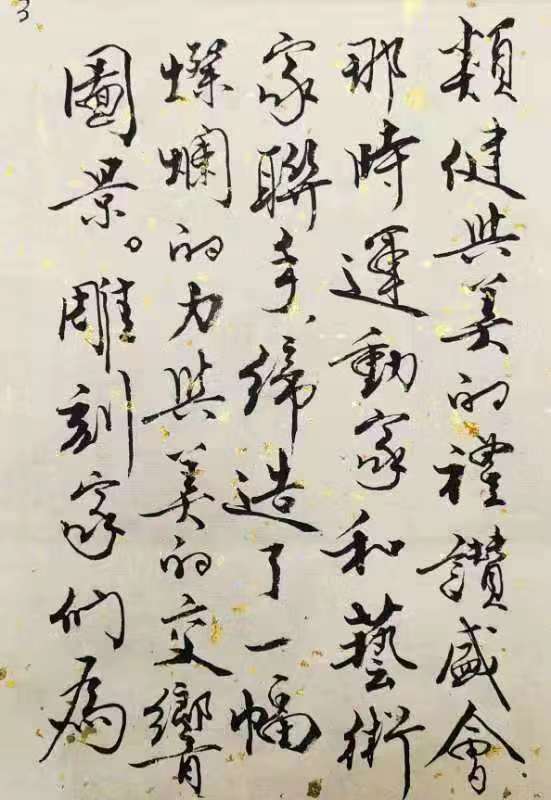 3
類健與美的禮讚盛會
那時運動家和藝術
家聯手、締造了一幅
燦爛的力與美的交響
圖景。雕刻家們為